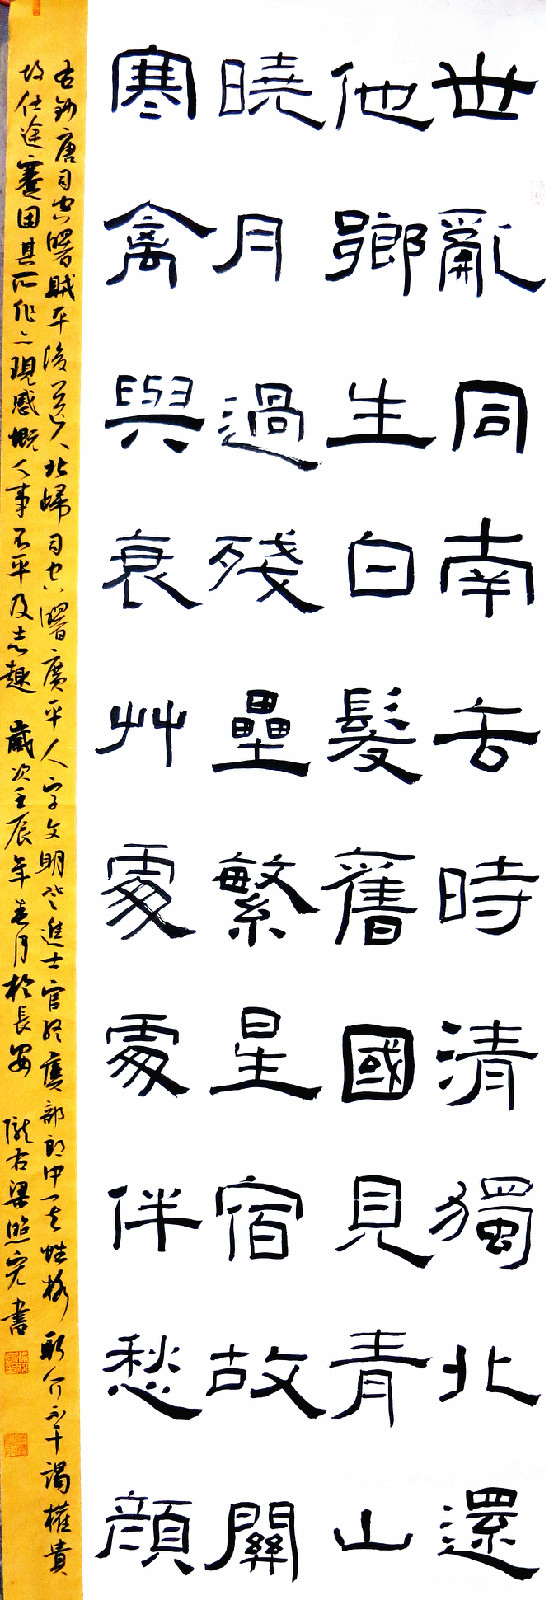 世亂同南去時清獨北還
他鄉生白髮舊國見青山
曉月過殘壘繁星宿故關
寒禽與衰艸處處伴愁顏
右鈔唐司空曙賊平後送人北歸司空曙廣平人字文明登進士官終虞部郎中性格耿介不干謁權貴
故仕途蹇困其所作現感慨人事不平及志趣 歲次壬辰年春月於長安 隴右梁照書